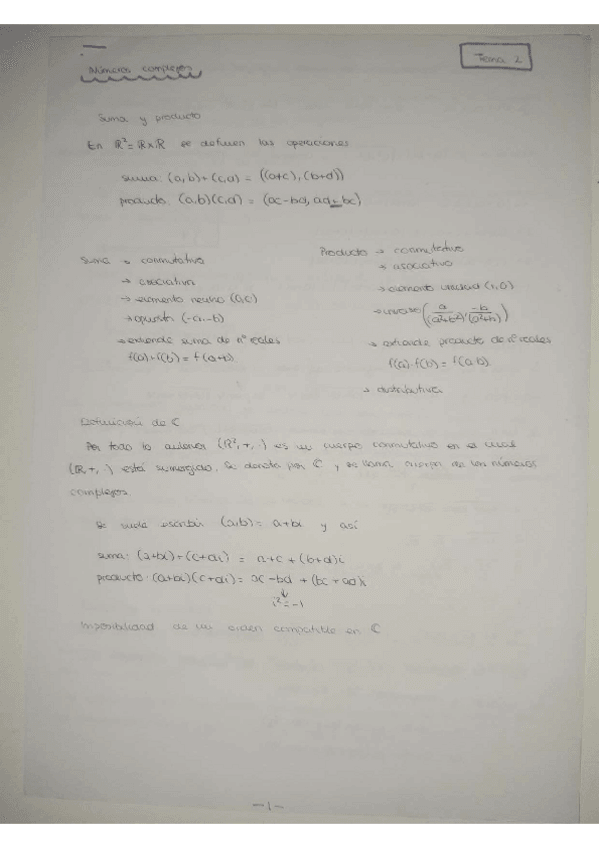 Tema 2
Números complejos
Suma y producto
En ℝ²=ℝxℝ se definen las operaciones
suma: (a,b)+(c,d) = ((a+c),(b+d))
producto: (a,b)(c,d) = (ac-bd, ad+bc)
Suma → conmutativo
→ asociativa
→ elemento neutro (0,0)
→ opuesto (-a,-b)
→ extiende suma de nº reales
f(a)+f(b) = f(a+b)
Producto → conmutativo
→ asociativo
→ elemento unidad (1,0)
→ inverso (a/(a²+b²), -b/(a²+b²))
→ extiende producto de nº reales
f(a)·f(b) = f(a·b)
→ distributiva
Definición de ℂ
Por todo lo anterior (ℝ²,+,·) es un cuerpo conmutativo en el cual
(ℝ,+,·) está sumergido. Se denota por ℂ y se llama cuerpo de los números
complejos.
Se suele escribir (a,b) = a+bi y así
suma: (a+bi)+(c+di) = a+c+(b+d)i
producto: (a+bi)(c+di) = ac-bd+(bc+ad)i
↓
i²=-1
Imposibilidad de un orden compatible en ℂ
-1-